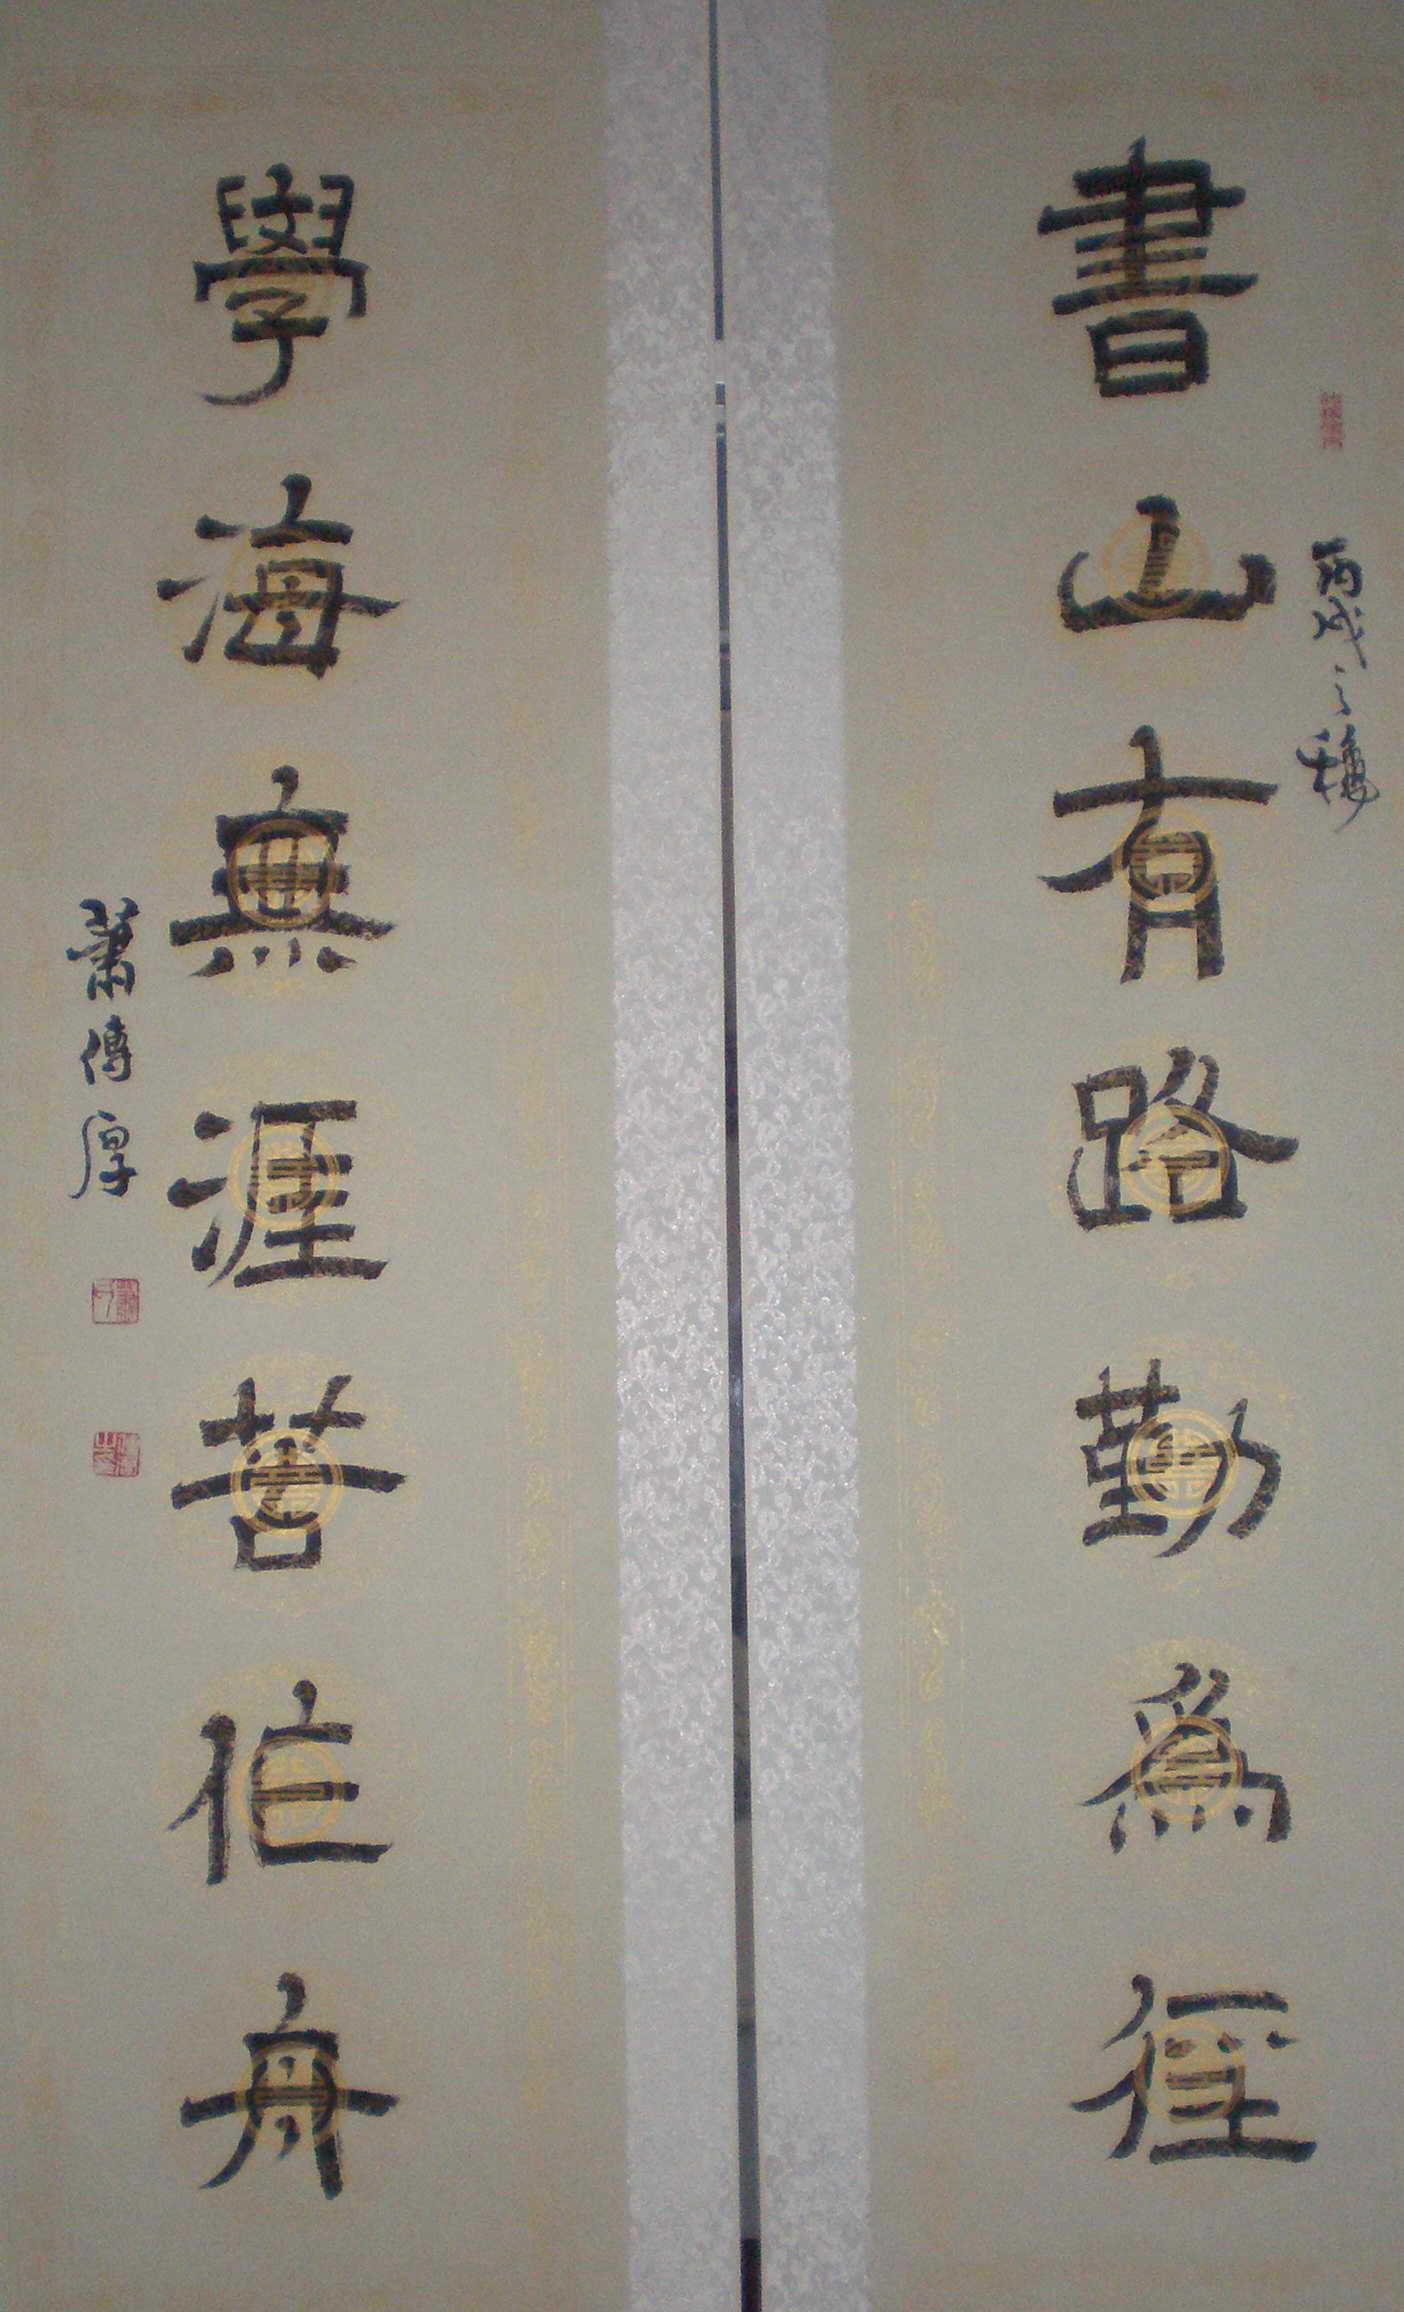 書山有路勤為徑
丙戌之穐
學海無涯苦作舟
蕭傳厚